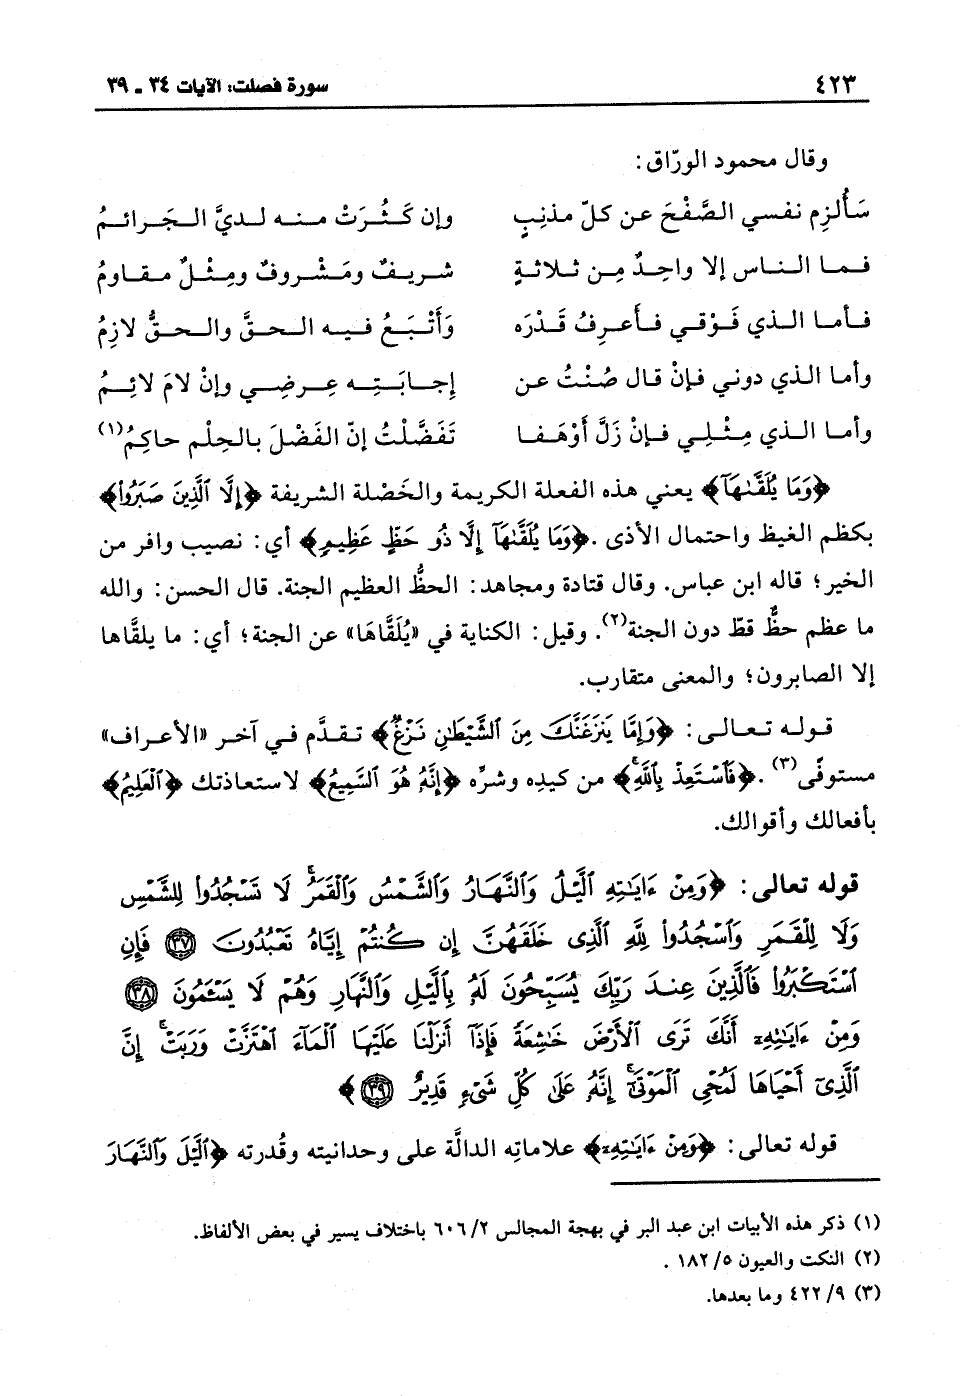 ٤٢٣ سورة فصلت: الآيات ٣٤ ـ ٣٩
وقال محمود الورّاق:
سَأُلزِم نفسي الصَّفْحَ عن كلّ مذنِبٍ وإن كَثُرَتْ منه لديَّ الجَرائمُ
فما الناس إلا واحِدٌ مِن ثلاثةٍ شريفٌ ومَشْروفٌ ومِثْلٌ مقاومُ
فأما الذي فَوْقي فأَعرِفُ قَدْرَه وَأَتْبَعُ فيه الحقَّ والحقُّ لازِمُ
وأما الذي دوني فإنْ قال صُنْتُ عن إجابَتِه عِرضِي وإنْ لامَ لائِمُ
وأما الذي مِثْلِي فإنْ زَلَّ أوْهَفا تَفَضَّلْتُ إنّ الفَضْلَ بالحِلْم حاكِمُ(١)
﴿وَمَا يُلَقَّىٰهَآ﴾ يعني هذه الفعلة الكريمة والخَصْلة الشريفة ﴿إِلَّا ٱلَّذِينَ صَبَرُوا۟﴾
بكظم الغيظ واحتمال الأذى. ﴿وَمَا يُلَقَّىٰهَآ إِلَّا ذُو حَظٍّ عَظِيمٍ﴾ أي: نصيب وافر من
الخير؛ قاله ابن عباس. وقال قتادة ومجاهد: الحظُّ العظيم الجنة. قال الحسن: والله
ما عظم حظٌّ قطّ دون الجنة(٢). وقيل: الكناية في «يُلَقَّاهَا» عن الجنة؛ أي: ما يلقَّاها
إلا الصابرون؛ والمعنى متقارب.
قوله تعالى: ﴿وَإِمَّا يَنزَغَنَّكَ مِنَ ٱلشَّيْطَٰنِ نَزْغٌ﴾ تقدَّم في آخر «الأعراف»
مستوفًى(٣). ﴿فَٱسْتَعِذْ بِٱللَّهِ ۖ﴾ من كيدِه وشرِّه ﴿إِنَّهُۥ هُوَ ٱلسَّمِيعُ﴾ لاستعاذتك ﴿ٱلْعَلِيمُ﴾
بأفعالك وأقوالك.
قوله تعالى: ﴿وَمِنْ ءَايَٰتِهِ ٱلَّيْلُ وَٱلنَّهَارُ وَٱلشَّمْسُ وَٱلْقَمَرُ ۚ لَا تَسْجُدُوا۟ لِلشَّمْسِ
وَلَا لِلْقَمَرِ وَٱسْجُدُوا۟ لِلَّهِ ٱلَّذِى خَلَقَهُنَّ إِن كُنتُمْ إِيَّاهُ تَعْبُدُونَ ۝٣٧ فَإِنِ
ٱسْتَكْبَرُوا۟ فَٱلَّذِينَ عِندَ رَبِّكَ يُسَبِّحُونَ لَهُۥ بِٱلَّيْلِ وَٱلنَّهَارِ وَهُمْ لَا يَسْـَٔمُونَ ۝٣٨
وَمِنْ ءَايَٰتِهِۦٓ أَنَّكَ تَرَى ٱلْأَرْضَ خَٰشِعَةً فَإِذَآ أَنزَلْنَا عَلَيْهَا ٱلْمَآءَ ٱهْتَزَّتْ وَرَبَتْ ۚ إِنَّ
ٱلَّذِىٓ أَحْيَاهَا لَمُحْىِ ٱلْمَوْتَىٰٓ ۚ إِنَّهُۥ عَلَىٰ كُلِّ شَىْءٍ قَدِيرٌ ۝٣٩﴾
قوله تعالى: ﴿وَمِنْ ءَايَٰتِهِ﴾ علاماتِه الدالَّة على وحدانيته وقُدرته ﴿ٱلَّيْلَ وَٱلنَّهَارَ
(١) ذكر هذه الأبيات ابن عبد البر في بهجة المجالس ٢/ ٦٠٦ باختلاف يسير في بعض الألفاظ.
(٢) النكت والعيون ٥/ ١٨٢ .
(٣) ٩/ ٤٢٢ وما بعدها.